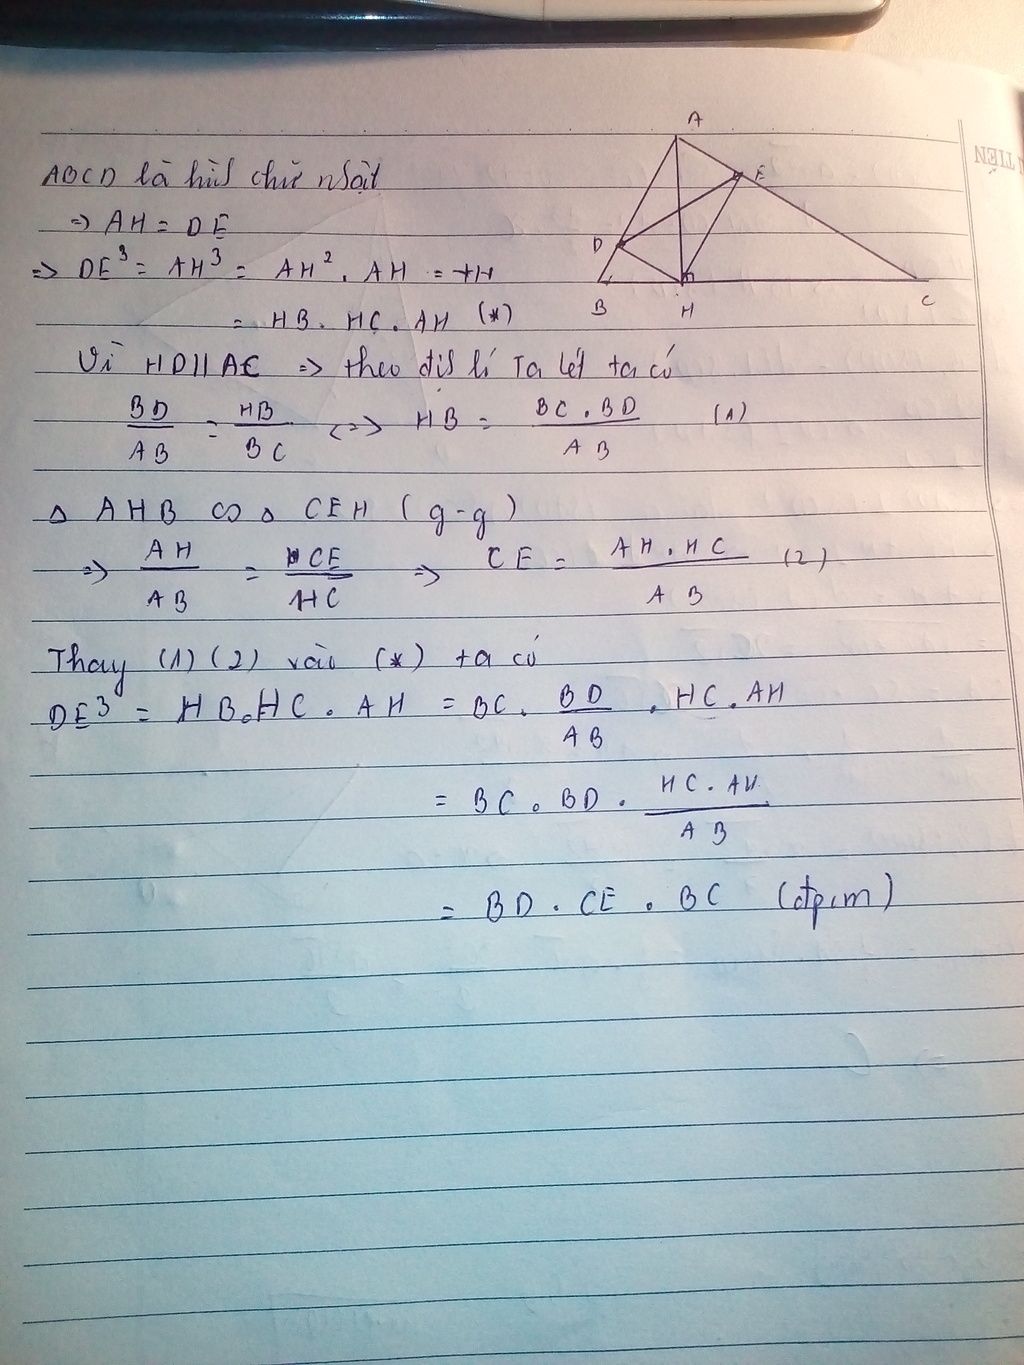 A
E
D
B
H
C
N TIẾN
ABCD là hìn chữ nhật
=> AH = DE
=> DE³ = AH³ = AH² . AH
= HB . HC . AH (*)
Vì HD//AC => theo địn lí Ta lét ta có
BD/AB = HB/BC <=> HB = BC . BD/AB (1)
Δ AHB ∽ Δ CEH (g-g)
=> AH/AB = CE/HC => CE = AH . HC/AB (2)
Thay (1) (2) vào (*) ta có
DE³ = HB . HC . AH = BC . BD/AB . HC . AH
= BC . BD . HC . AH/AB
= BD . CE . BC (đpcm)